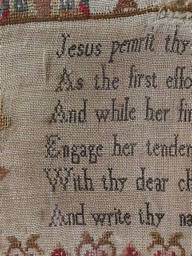 Jesus permit thy
As the first effo
And while her fin
Engage her tender
With thy dear ch
And write thy na